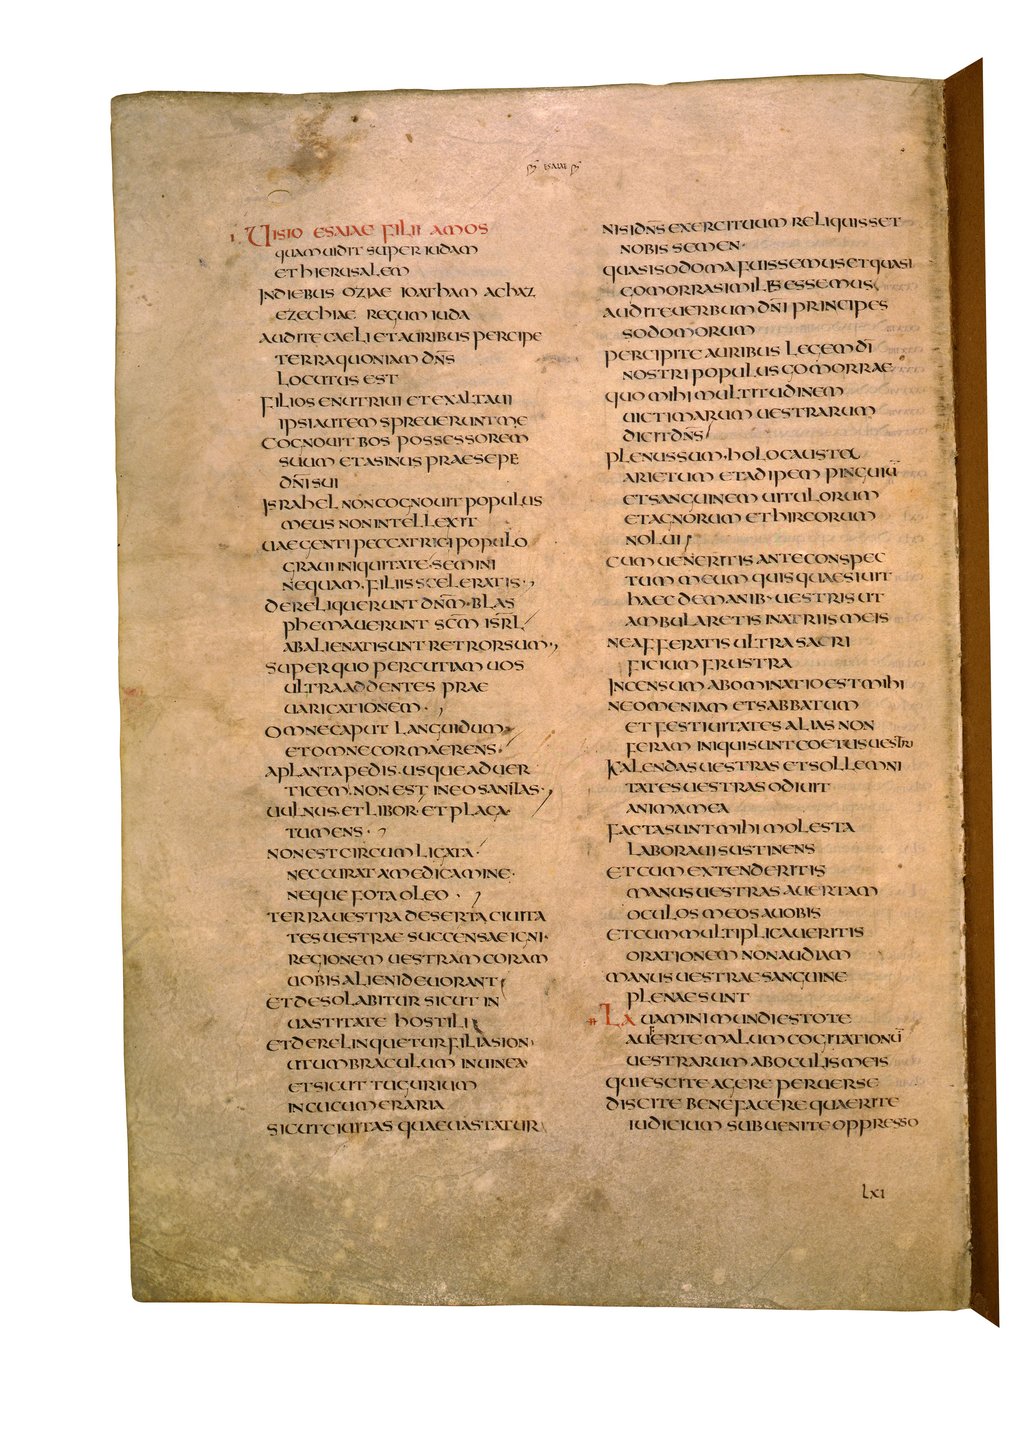 ESAIAE
I UISIO ESAIAE FILII AMOS
QUAM UIDIT SUPER IUDAM
ET HIERUSALEM
IN DIEBUS OZIAE IOATHAM ACHAZ
EZECHIAE REGUM IUDA
AUDITE CAELI ET AURIBUS PERCIPE
TERRA QUONIAM DN̄S
LOCUTUS EST
FILIOS ENUTRIUI ET EXALTAUI
IPSI AUTEM SPREUERUNT ME
COGNOUIT BOS POSSESSOREM
SUUM ET ASINUS PRAESEPE
DN̄I SUI
ISRAHEL NON COGNOUIT POPULUS
MEUS NON INTELLEXIT
UAE GENTI PECCATRICI POPULO
GRAUI INIQUITATE · SEMINI
NEQUAM · FILIIS SCELERATIS ·,
DERELIQUERUNT DN̄M · BLAS
PHEMAUERUNT SC̄M ISR̄L
ABALIENATI SUNT RETRORSUM ·,
SUPER QUO PERCUTIAM UOS
ULTRA ADDENTES PRAE
UARICATIONEM ·,
OMNE CAPUT LANGUIDUM
ET OMNE COR MAERENS ·
A PLANTA PEDIS · USQUE AD UER
TICEM · NON EST IN EO SANITAS ·,
UULNUS · ET LIBOR · ET PLAGA ·
TUMENS ·,
NON EST CIRCUMLIGATA ·
NEC CURATA MEDICAMINE ·
NEQUE FOTA OLEO ·,
TERRA UESTRA DESERTA CIUITA
TES UESTRAE SUCCENSAE IGNI ·
REGIONEM UESTRAM CORAM
UOBIS ALIENI DEUORANT
ET DESOLABITUR SICUT IN
UASTITATE HOSTILI
ET DERELINQUETUR FILIA SION ·
UT UMBRACULUM IN UINEA ·
ET SICUT TUGURIUM
IN CUCUMERARIA
SICUT CIUITAS QUAE UASTATUR
NISI DN̄S EXERCITUUM RELIQUISSET
NOBIS SEMEN ·
QUASI SODOMA FUISSEMUS ET QUASI
GOMORRA SIMILES ESSEMUS
AUDITE UERBUM DN̄I PRINCIPES
SODOMORUM
PERCIPITE AURIBUS LEGEM DĪ
NOSTRI POPULUS GOMORRAE
QUO MIHI MULTITUDINEM
UICTIMARUM UESTRARUM
DICIT DN̄S
PLENUS SUM · HOLOCAUSTA
ARIETUM ET ADIPEM PINGUIŪ
ET SANGUINEM UITULORUM
ET AGNORUM ET HIRCORUM
NOLUI
CUM UENERITIS ANTE CONSPEC
TUM MEUM QUIS QUAESIUIT
HAEC DE MANIB · UESTRIS UT
AMBULARETIS IN ATRIIS MEIS
NE AFFERATIS ULTRA SACRI
FICIUM FRUSTRA
INCENSUM ABOMINATIO EST MIHI
NEOMENIAM ET SABBATUM
ET FESTIUITATES ALIAS NON
FERAM INIQUI SUNT COETUS UESTRI
KALENDAS UESTRAS ET SOLLEMNI
TATES UESTRAS ODIUIT
ANIMA MEA
FACTA SUNT MIHI MOLESTA
LABORAUI SUSTINENS
ET CUM EXTENDERITIS
MANUS UESTRAS AUERTAM
OCULOS MEOS A UOBIS
ET CUM MULTIPLICAUERITIS
ORATIONEM NON AUDIAM
MANUS UESTRAE SANGUINE
PLENAE SUNT
II LAUAMINI MUNDI ESTOTE
AUFERTE MALUM COGITATIONŪ
UESTRARUM AB OCULIS MEIS
QUIESCITE AGERE PERUERSE
DISCITE BENEFACERE QUAERITE
IUDICIUM SUBUENITE OPPRESSO
LXI